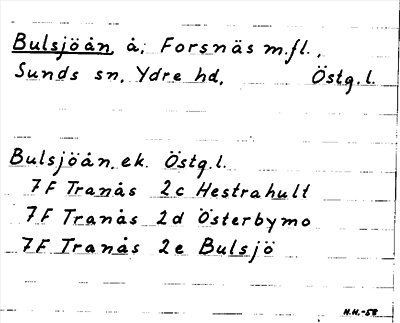 Bulsjöån, å, Forsnäs m.fl.,
Sunds sn, Ydre hd, Östg.l.
Bulsjöån, ek. Östg.l.
7F Tranås 2c Hestrahult
7F Tranås 2d Österbymo
7F Tranås 2e Bulsjö
H.H.-58